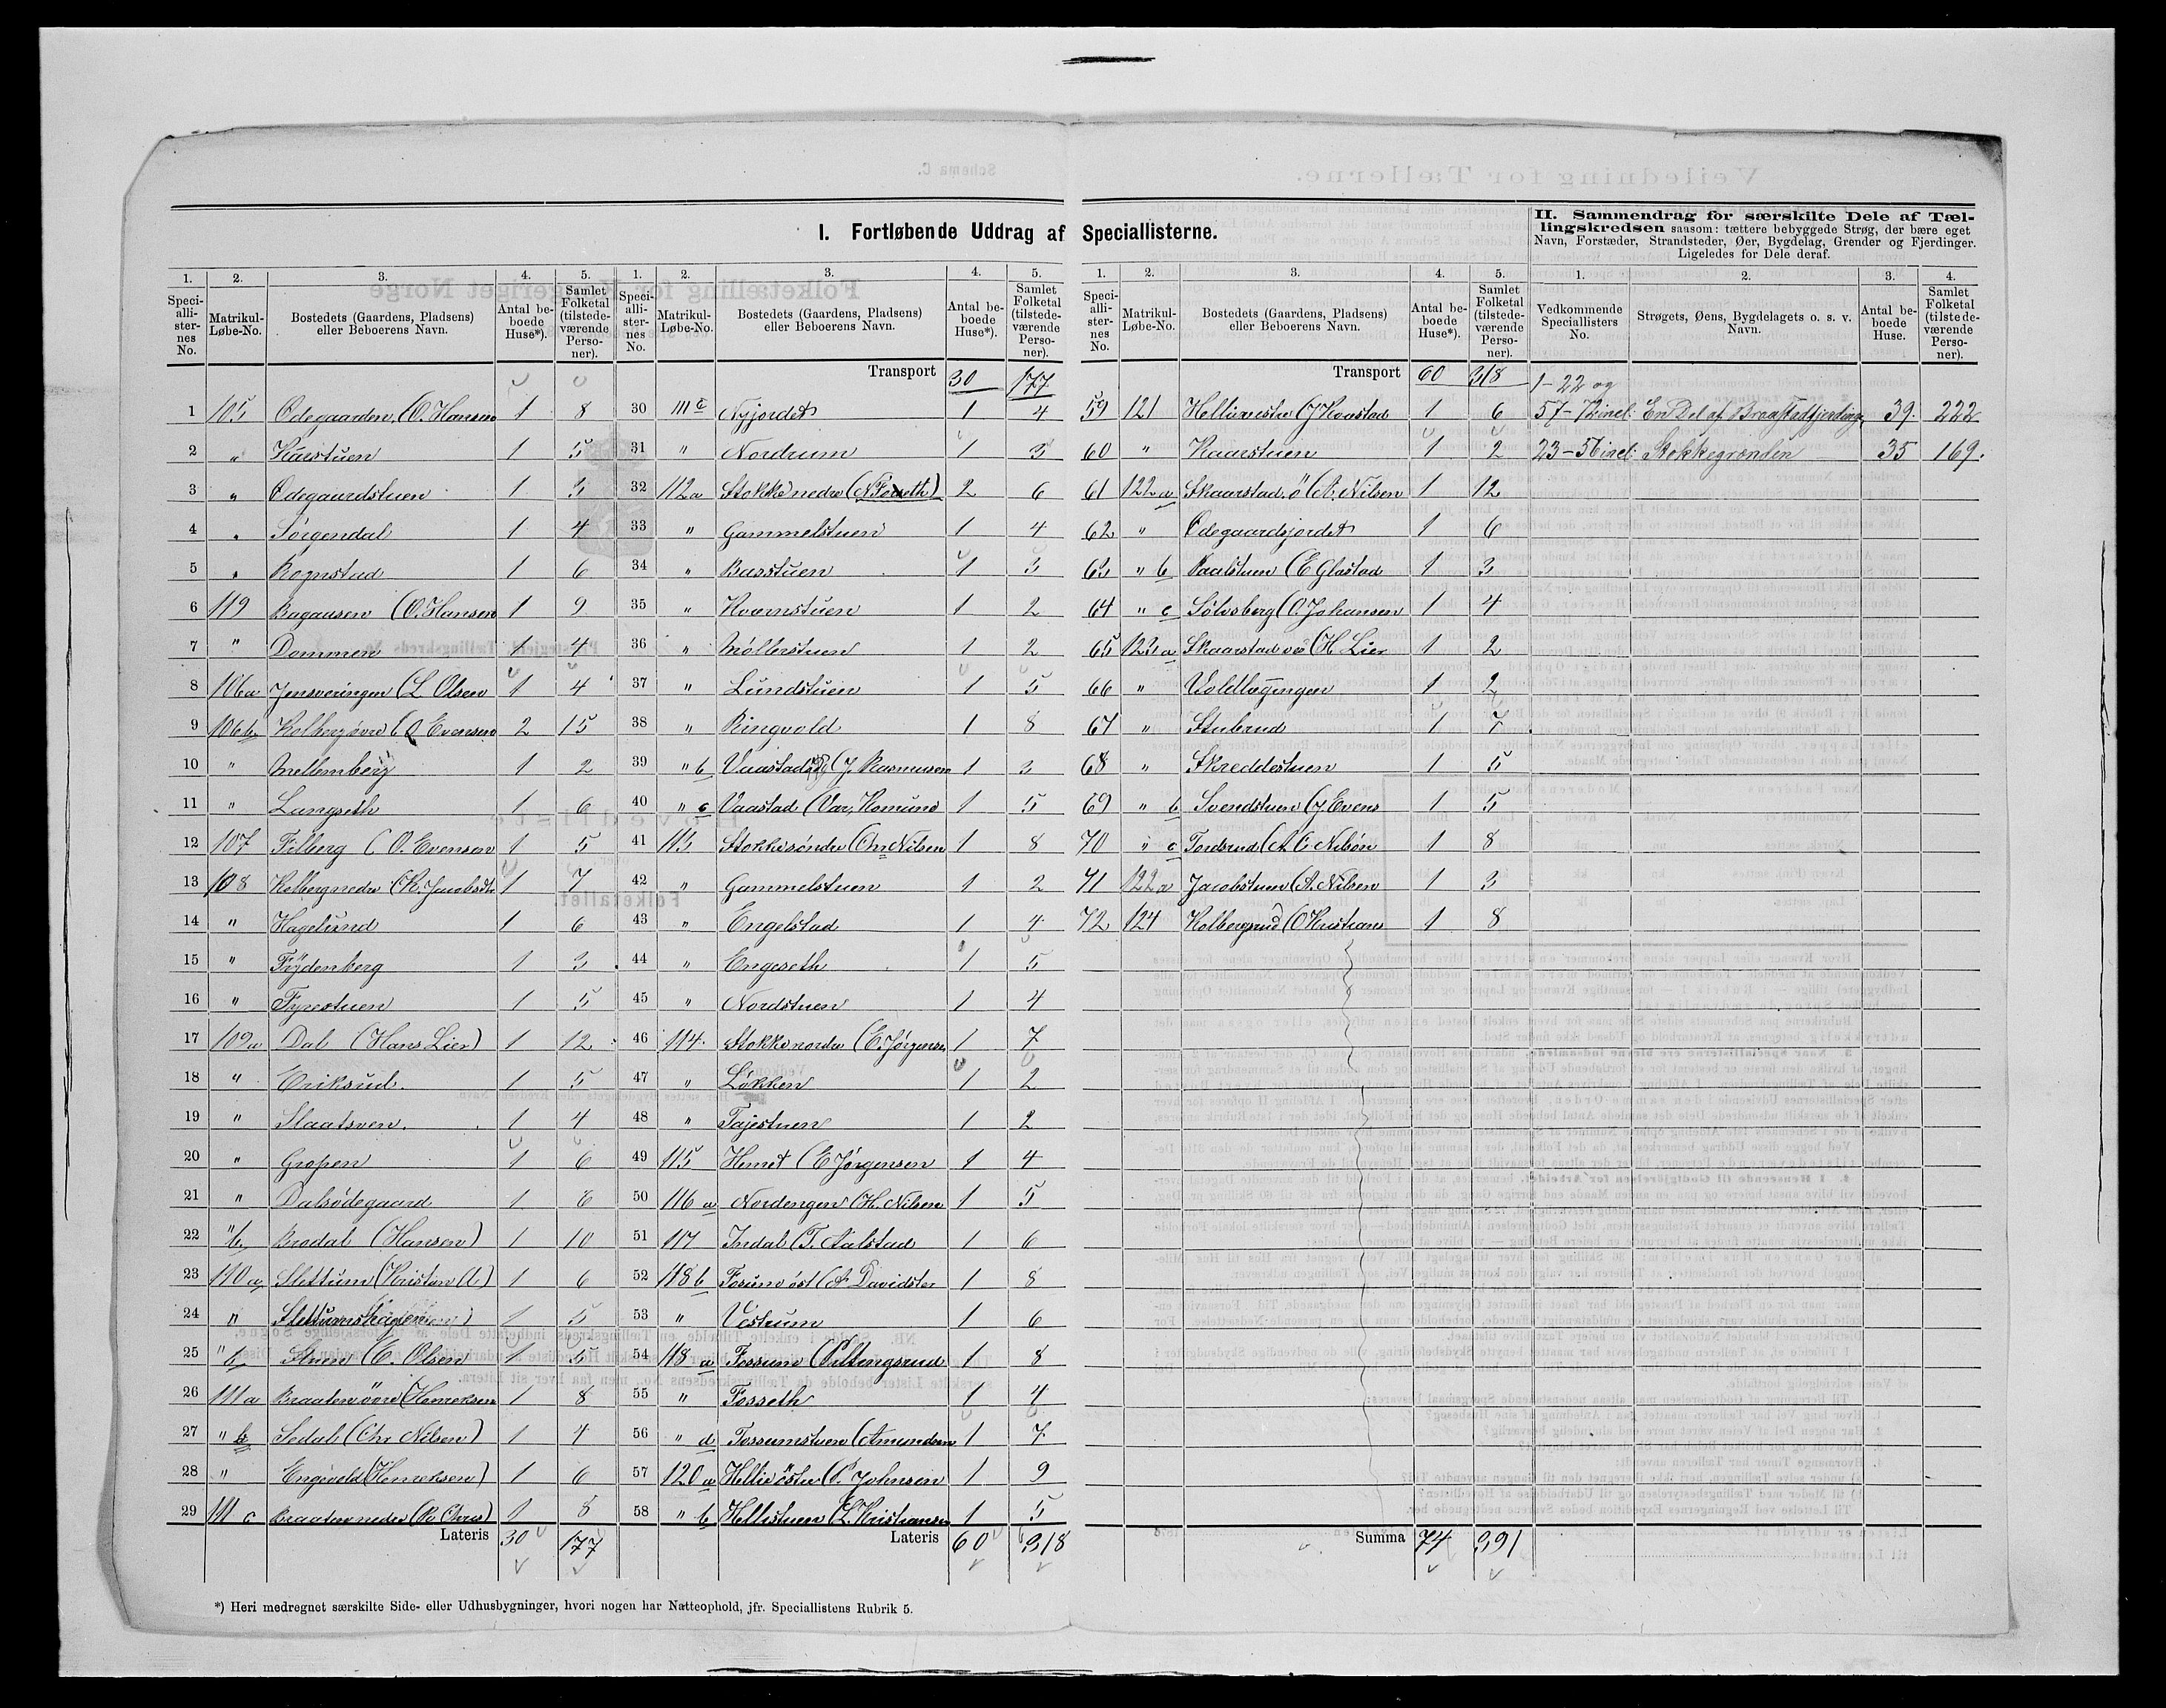 I. Fortløbende Uddrag af Speciallisterne.
II. Sammendrag for særskilte Dele af Tællingskredsen saasom: tættere bebyggede Strøg, der bære eget
Navn, Forstæder, Strandsteder, Øer, Bygdelag, Grender og Fjerdinger.
Ligeledes for Dele deraf.
1. 2. 3. 4. 5.
Speciallisternes No. Matrikul-Løbe-No. Bostedets (Gaardens, Pladsens) eller Beboerens Navn. Antal beboede Huse*). Samlet Folketal (tilstedeværende Personer).
1 105 Ødegaarden (O. Hansen 1 8
2 " Kaastuen 1 5
3 " Ødegaardstuen 1 3
4 " Sørgendal 1 4
5 " Rognstad 1 6
6 119 Bagaasen (O. Hansen 1 9
7 " Dammen 1 4
8 106a Jensveringen (L Olsen 1 4
9 106b Kolbergøvre (O Evensen 2 15
10 " Mellemberg 1 2
11 " Langseth 1 6
12 107 Filberg (O. Evensen 1 5
13 108 Kolbergnedre (K. Jacobsdtr 1 7
14 " Hagelund 1 6
15 " Frydenberg 1 3
16 " Fyrestuen 1 5
17 109a Dal (Hans Lier) 1 12
18 " Eriksrud. 1 5
19 " Slaatsven. 1 4
20 " Gropen 1 6
21 " Dalsødegaard 1 6
22 " b Brodal (Hansen) 1 10
23 110a Slettum (Kristen 1 6
24 " Slettumshagen 1 5
25 " b Stuen (E. Olsen 1 5
26 111a Braatenøvre (Henreksen 1 8
27 " b Sedal (Chr Nilsen) 1 4
28 " Engevold (Henreksen) 1 6
29 111 c Braaten nedre 1 8
Lateris 30 177
1. 2. 3. 4. 5.
Speciallisternes No. Matrikul-Løbe-No. Bostedets (Gaardens, Pladsens) eller Beboerens Navn. Antal beboede Huse*). Samlet Folketal (tilstedeværende Personer).
Transport 30 177
30 111 c Nyjordet 1 4
31 " Nordrum 1 3
32 112a Stokke nedre (N Fosseth) 2 6
33 " Gammelstuen 1 4
34 " Basstuen 1 3
35 " Kvernstuen 1 2
36 " Møllerstuen 1 2
37 " Lundstuen 1 5
38 " Ringvold 1 8
39 " b Vaastad (J. Rasmusen 1 3
40 " c Vaastad 1 5
41 113 Stokkesøndre (Chr Nilsen 1 8
42 " Gammelstuen 1 2
43 " Engelstad 1 4
44 " Engeseth 1 5
45 " Nordstuen 1 4
46 114. Stokke nordre (E. Jørgensen 1 7
47 " Løkken 1 2
48 " Tajestuen 1 2
49 115 Hemet (E Jørgensen 1 4
50 116 a Nordengen (H. Nilsen 1 5
51 117 Indal (T. Aalstad 1 6
52 118 b Fosum øst (A Davidster 1 8
53 " Vestrum 1 6
54 118 a Fossum 1 8
55 " Fosseth 1 4
56 " d Fossumstuen (Amundsen 1 7
57 120 a Hellie østre (P. Johnsen 1 9
58 " b Hellistuen (L. Kristiansen 1 5
Lateris 60 318
1. 2. 3. 4. 5.
Speciallisternes No. Matrikul-Løbe-No. Bostedets (Gaardens, Pladsens) eller Beboerens Navn. Antal beboede Huse*). Samlet Folketal (tilstedeværende Personer).
Transport 60 318
59 121 Hellivestre (J Kvastad 1 6
60 " Kaarstuen 1 2
61 122a Skaarstad. ø (A. Nilsen 1 12
62 " Ødegaardsjordet 1 6
63 " b Vaalstuen (E Glastad 1 3
64 " c Sølvsberg (O. Johansen 1 4
65 123a Skaarstad ve (H. Lier 1 2
66 " Voldlægingen 1 2
67 " Stubrud 1 7
68 " Skreddestuen 1 5
69 " b Svendstuen (J Evens 1 5
70 " c Tordsrud 1 8
71 122a Jacobstuen (A. Nilsen 1 3
72 124 Kolbergsrud (O Kristians 1 8
Summa 74 391
1. 2. 3. 4.
Vedkommende Speciallisters No. Strøgets, Øens, Bygdelagets o. s. v. Navn. Antal beboede Huse. Samlet Folketal (tilstedeværende Personer).
1-22 og
57-72 incl: En Del af Braastadfjerding 39. 222
23-56 incl: Stokkegrenden 35 169.
*) Heri medregnet særskilte Side- eller Udhusbygninger, hvori nogen har Natteophold, jfr. Speciallistens Rubrik 5.